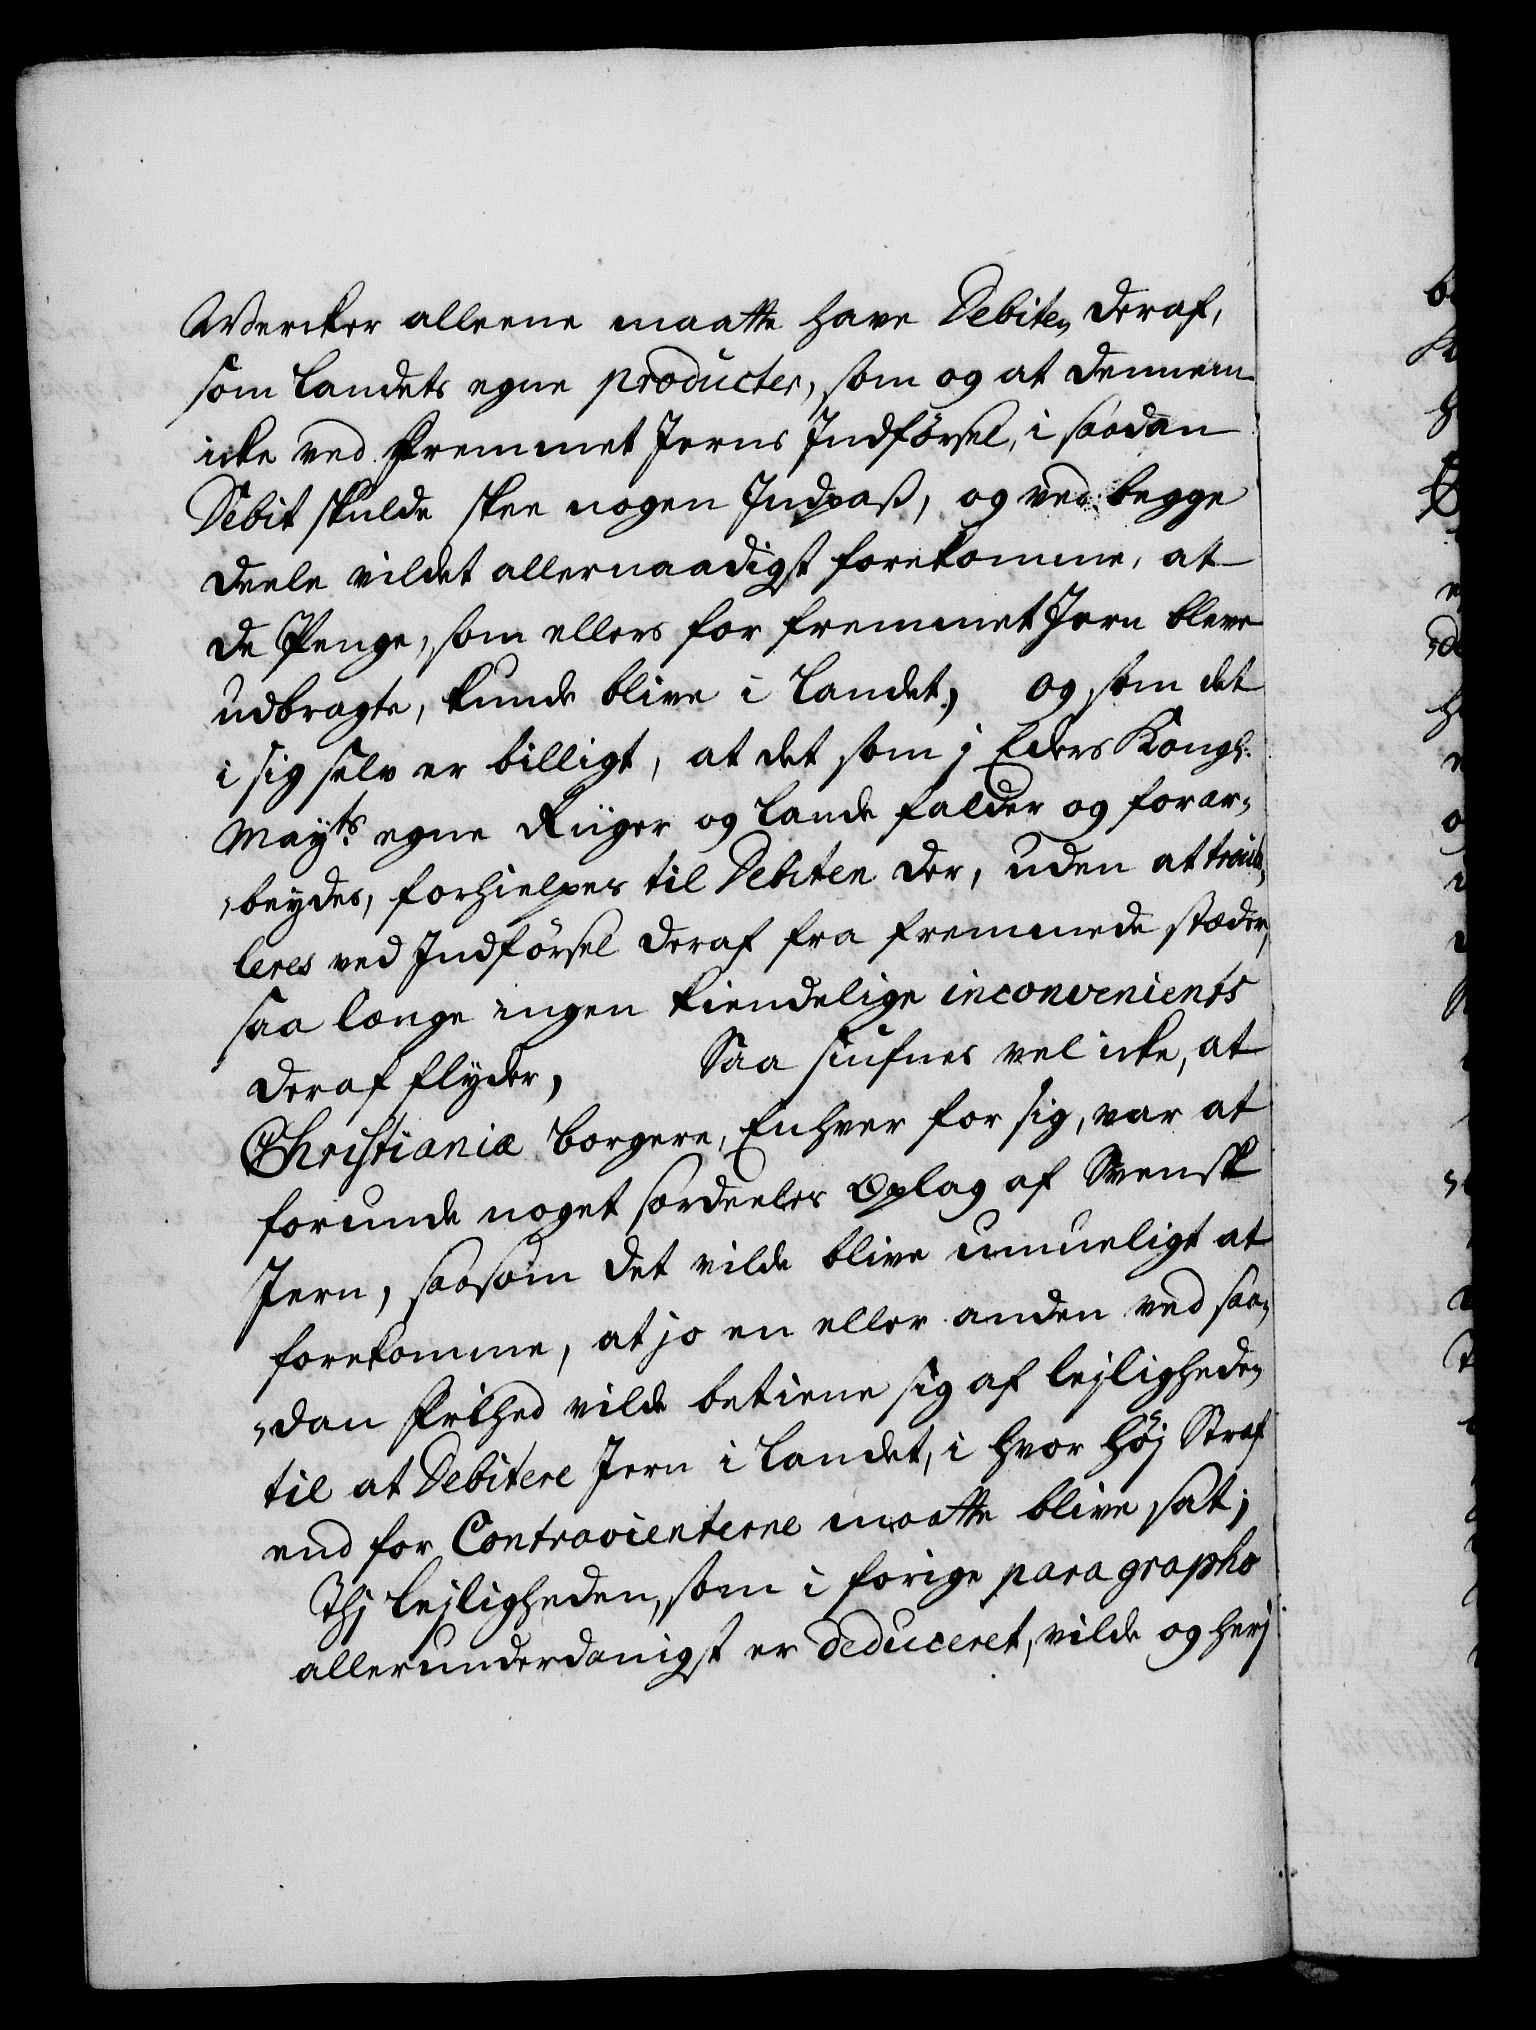 Wercker alleene maatte have Debiten deraf,
som Landets egne producter, som og at dennem
icke ved fremmet Jerns Indførsel, i saadan
Debit skulde skee nogen Indpaß, og ved begge
deele vildet allernaadigst forekomme, at
de Penge, som ellers for fremmet Jern bleve
udbragte, kunde blive i Landet, og som det
i sig selv er billigt, at det som j Eders Kongl:
Mayts egne Riiger og Lande falder og forar-
beydes, forhielpes til Debiten der, uden at troub-
leres ved Indførsel deraf fra fremmede stæder,
saa længe ingen kiendelige inconvenients
deraf flyder, Saa siufnes vel icke, at
Christianiæ borgere, Enhver for sig, var at
forunde noget særdeeles Oplag af Svensk
Jern, saasom det vilde blive umueligt at
forekomme, at jo en eller anden ved saa-
dan frihed vilde betiene sig af lejligheden
til at Debitere Jern i Landet, i hvor høj Straf
end for Contravienterne maatte blive sat;
Thj Lejligheden, som i forige paragrapho
allerunderdanigst er deduceret, vilde og herj